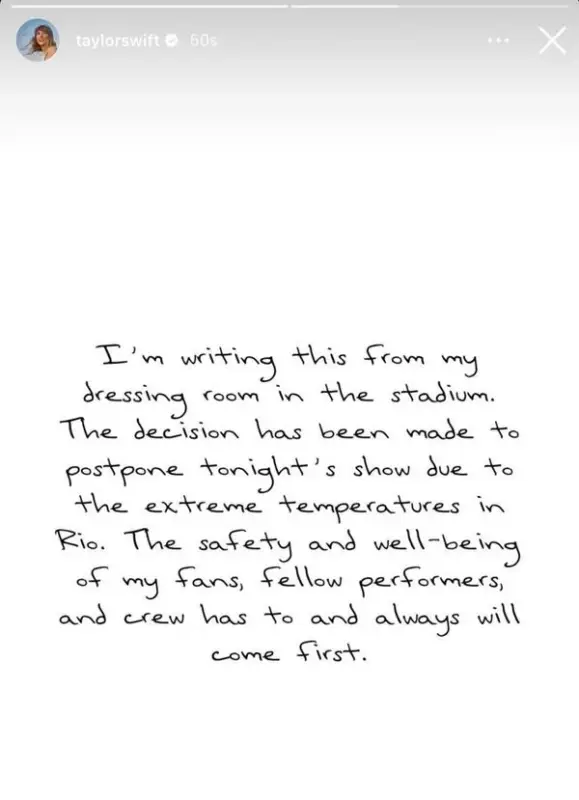 taylorswift 60s
I'm writing this from my
dressing room in the stadium.
The decision has been made to
postpone tonight's show due to
the extreme temperatures in
Rio. The safety and well-being
of my fans, fellow performers,
and crew has to and always will
come first.